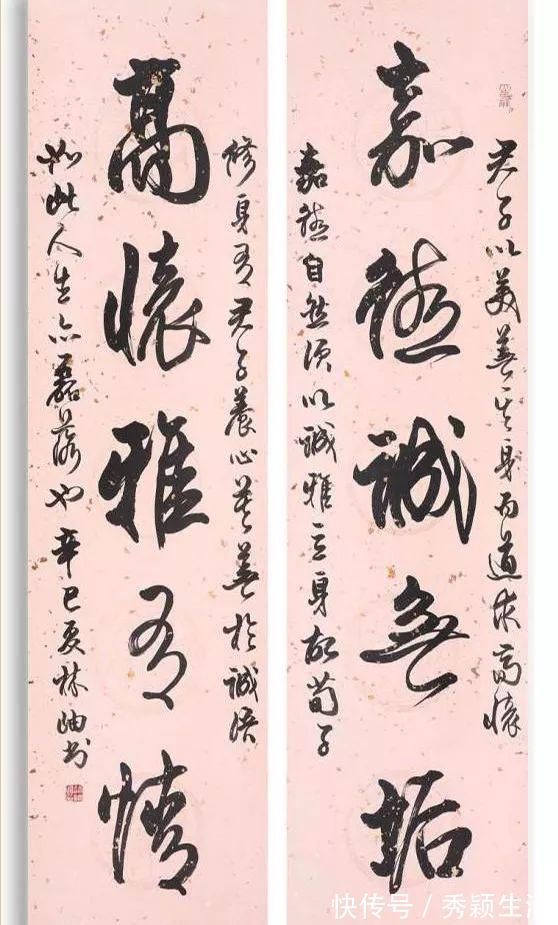 君子以美善其身而道高懷
嘉誠無垢
嘉自然須以誠雅立身故荀子
修身有君子養心莫善於誠語
高懷雅有情
如此人生亦磊落也辛巳夏林岫書
快传号 / 秀颖生